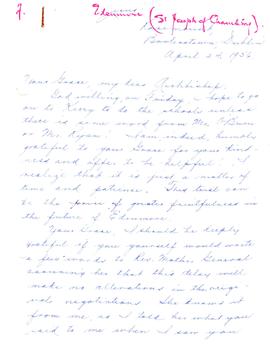 7.
Edenmore (St Joseph of Chambéry).
Booterstown, Dublin
April 24, 1956
Your Grace, my dear Archbishop,
God willing, on Friday I hope to go
on to Kerry to do the schools unless
there is some word from Mr. O'Brien
or Mr. Ryan. I am indeed humbly
grateful to your Grace for your kind-
ness and offer to be helpful. I
realize that it is just a matter of
time and patience. This trial can
be the power of greater fruitfulness in
the future of Edenmore.
Your Grace, I should be deeply
grateful if you yourself would write
a few words to Rev. Mother General
assuring her that this delay will
make no alterations in the orig-
inal negotiations. She knows it
from me, as I told her what you
said to me when I saw you